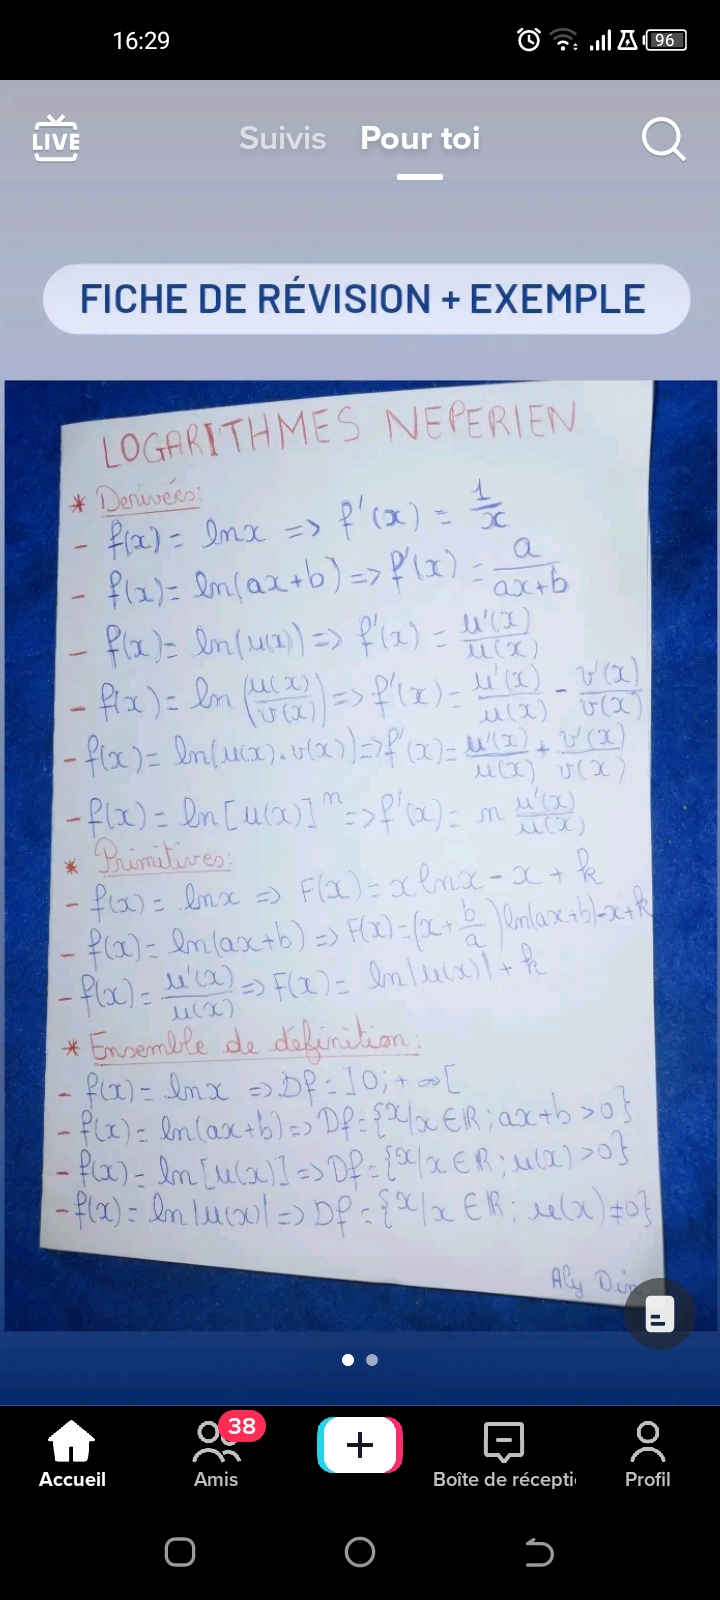 16:29
96
LIVE
Suivis Pour toi
FICHE DE RÉVISION + EXEMPLE
LOGARITHMES NEPERIEN
* Derivées:
- f(x) = lnx => f'(x) = 1/x
- f(x) = ln(ax+b) => f'(x) = a/(ax+b)
- f(x) = ln(u(x)) => f'(x) = u'(x)/u(x)
- f(x) = ln(u(x)/v(x)) => f'(x) = u'(x)/u(x) - v'(x)/v(x)
- f(x) = ln(u(x).v(x)) => f'(x) = u'(x)/u(x) + v'(x)/v(x)
- f(x) = ln[u(x)]^n => f'(x) = n u'(x)/u(x)
* Primitives:
- f(x) = lnx => F(x) = xlnx - x + k
- f(x) = ln(ax+b) => F(x) = (x + b/a)ln(ax+b)-x+k
- f(x) = u'(x)/u(x) => F(x) = ln|u(x)| + k
* Ensemble de définition:
- f(x) = lnx => Df = ]0;+∞[
- f(x) = ln(ax+b) => Df = {x/x∈ℝ; ax+b>0}
- f(x) = ln[u(x)] => Df = {x/x∈ℝ; u(x)>0}
- f(x) = ln|u(x)| => Df = {x/x∈ℝ; u(x)≠0}
Aly Din
38
Accueil Amis Boîte de récepti Profil